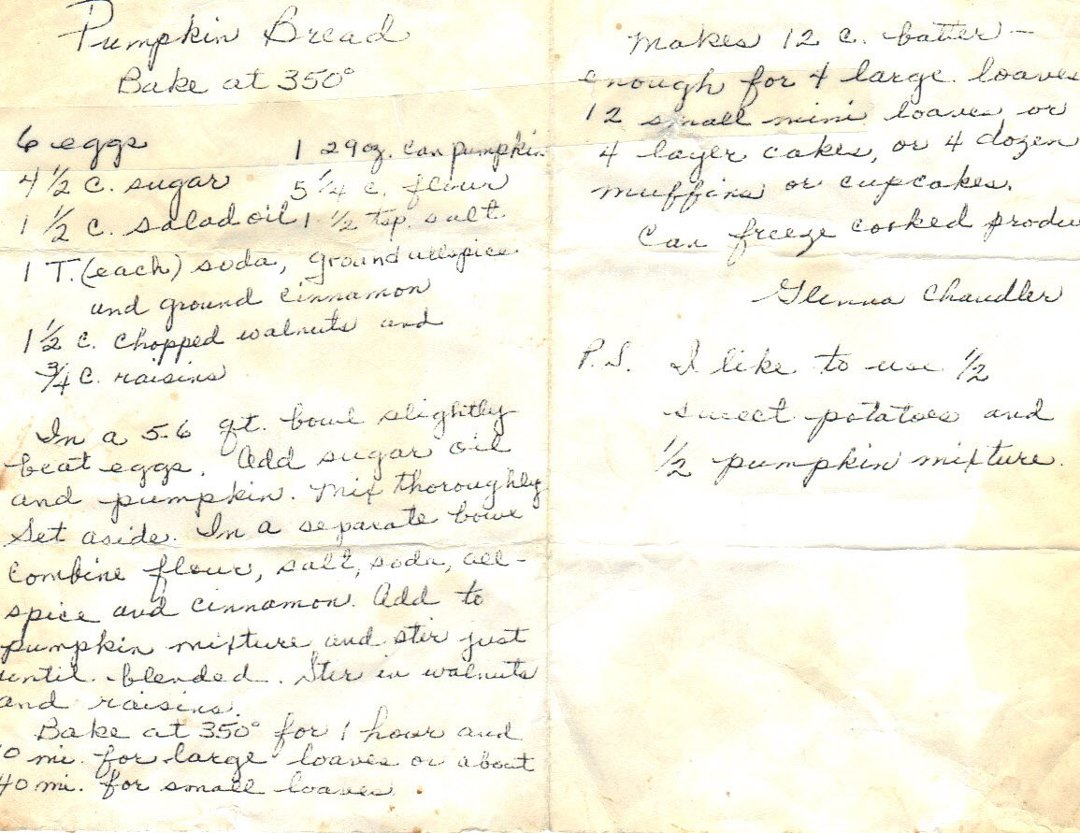 Pumpkin Bread
Bake at 350°
6 eggs 1 29 oz. can pumpkin
4 1/2 c. sugar 5 1/4 c. flour
1 1/2 c. salad oil 1 1/2 tsp. salt
1 T. (each) soda, ground allspice
and ground cinnamon
1 1/2 c. chopped walnuts and
3/4 c. raisins
In a 5-6 qt. bowl slightly
beat eggs. Add sugar oil
and pumpkin. Mix thoroughly
Set aside. In a separate bowl
combine flour, salt, soda, all-
spice and cinnamon. Add to
pumpkin mixture and stir just
until blended. Stir in walnuts
and raisins.
Bake at 350° for 1 hour and
0 mi. for large loaves or about
40 mi. for small loaves
Makes 12 c. batter –
enough for 4 large loaves
12 small mini loaves or
4 layer cakes, or 4 dozen
muffins or cupcakes.
Can freeze cooked produ
Glenna Chandler
P.S. I like to use 1/2
sweet potatoes and
1/2 pumpkin mixture.